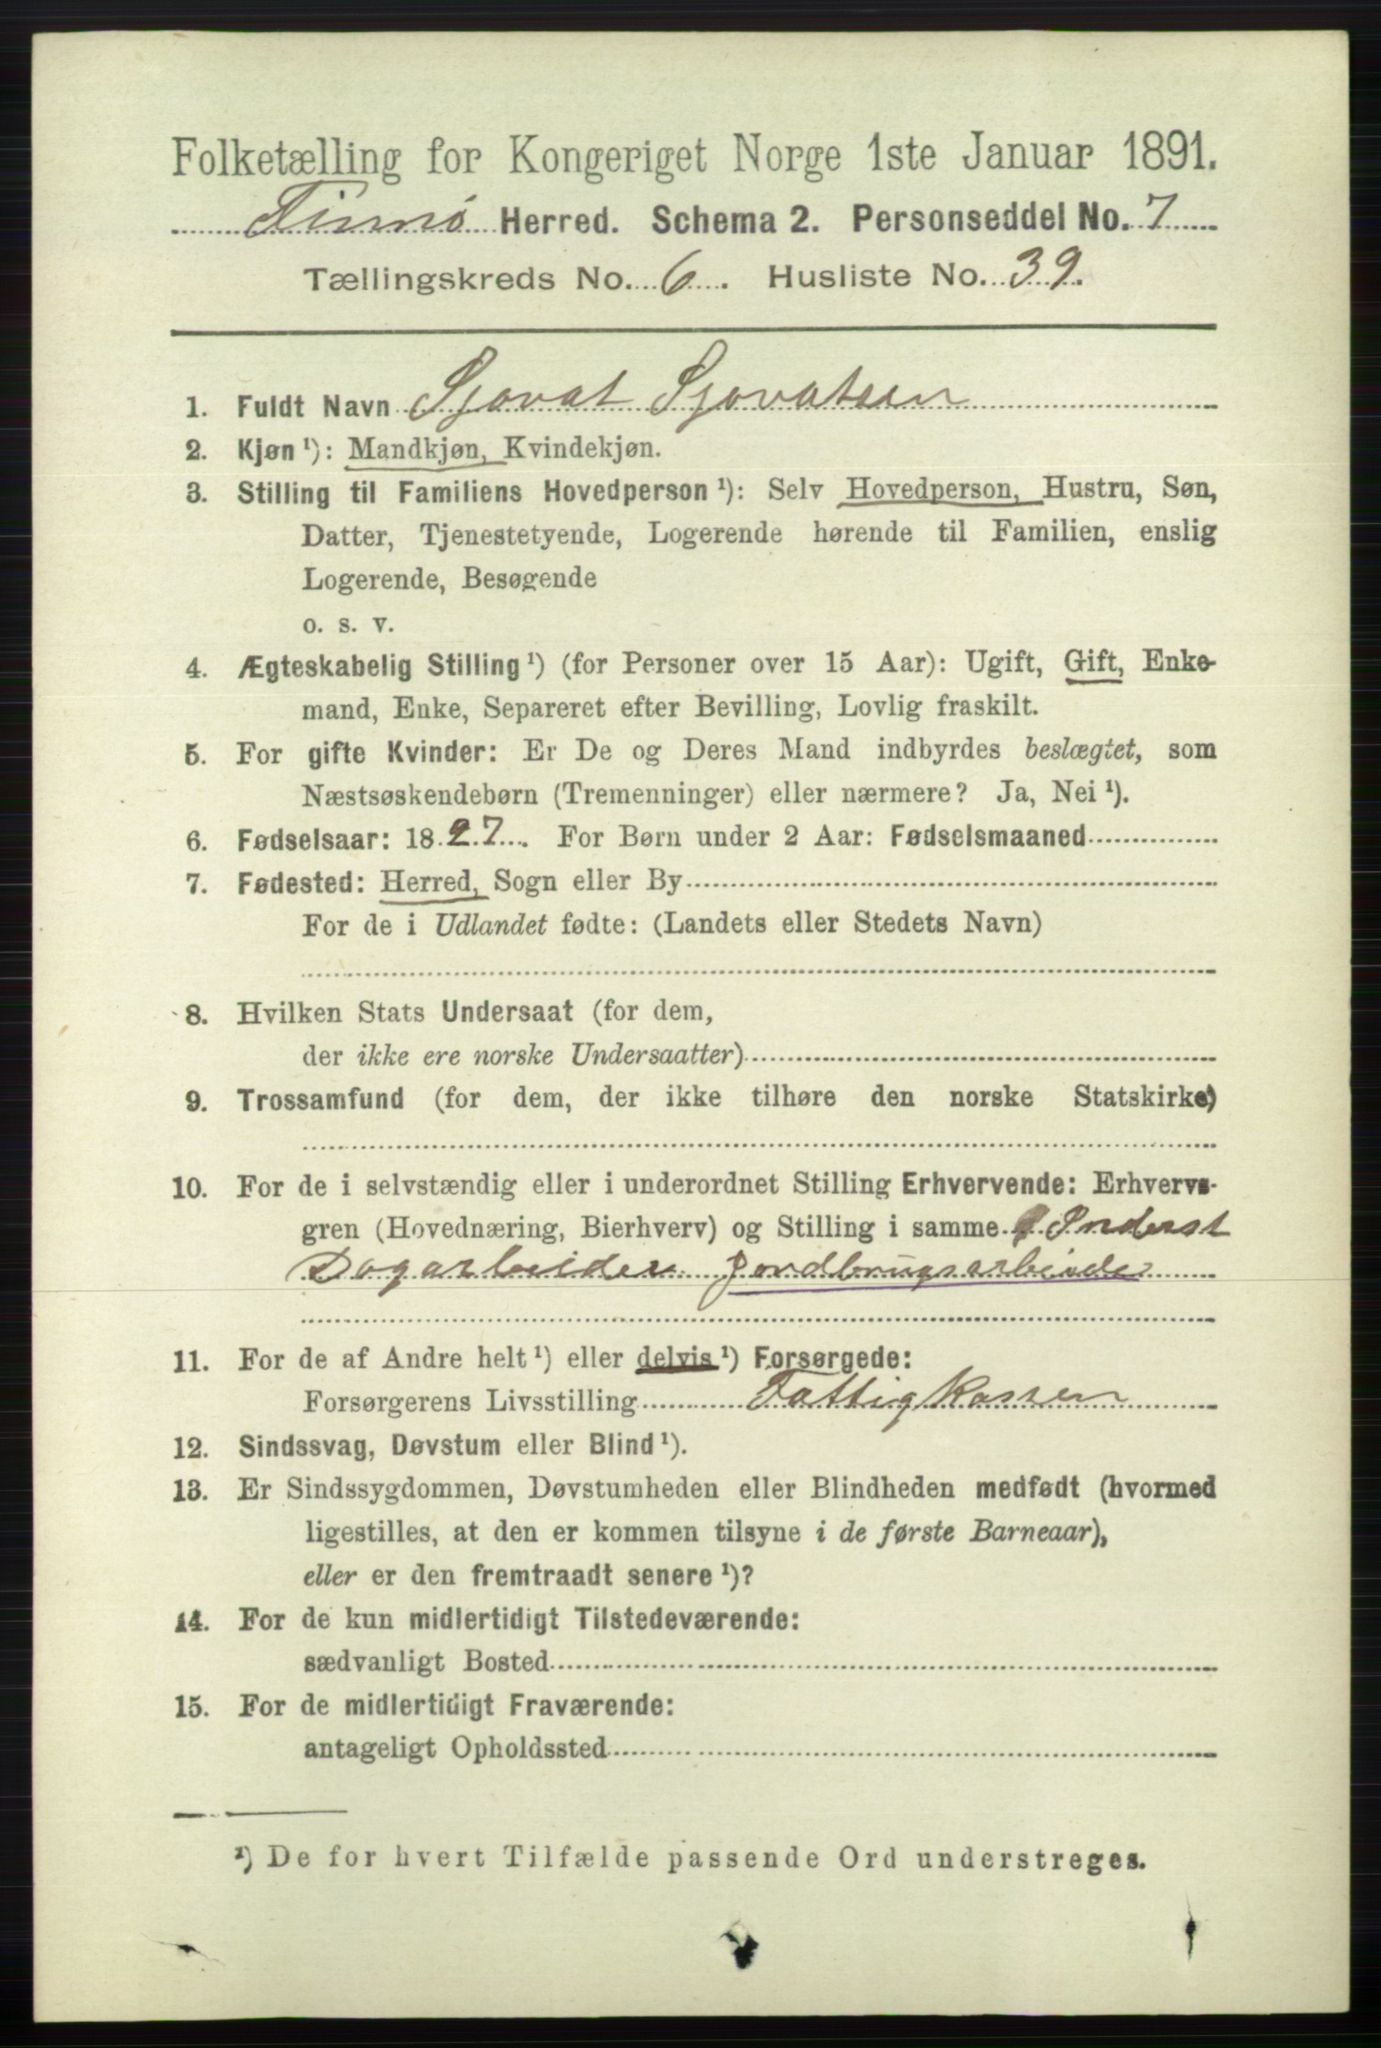 Folketælling for Kongeriget Norge 1ste Januar 1891.
Finnø Herred. Schema 2. Personseddel No. 7
Tællingskreds No. 6. Husliste No. 39.
1. Fuldt Navn Sjovat Sjovatsen
2. Kjøn ¹): Mandkjøn, Kvindekjøn.
3. Stilling til Familiens Hovedperson ¹): Selv Hovedperson, Hustru, Søn,
Datter, Tjenestetyende, Logerende hørende til Familien, enslig
Logerende, Besøgende
o. s. v.
4. Ægteskabelig Stilling ¹) (for Personer over 15 Aar): Ugift, Gift, Enke-
mand, Enke, Separeret efter Bevilling, Lovlig fraskilt.
5. For gifte Kvinder: Er De og Deres Mand indbyrdes beslægtet, som
Næstsøskendebørn (Tremenninger) eller nærmere? Ja, Nei ¹).
6. Fødselsaar: 1827. For Børn under 2 Aar: Fødselsmaaned
7. Fødested: Herred, Sogn eller By
For de i Udlandet fødte: (Landets eller Stedets Navn)
8. Hvilken Stats Undersaat (for dem,
der ikke ere norske Undersaatter)
9. Trossamfund (for dem, der ikke tilhøre den norske Statskirke)
10. For de i selvstændig eller i underordnet Stilling Erhvervende: Erhvervs-
gren (Hovednæring, Bierhverv) og Stilling i samme Inderst
Dagarbeider Jordbrugsarbeide
11. For de af Andre helt ¹) eller delvis ¹) Forsørgede:
Forsørgerens Livsstilling Fattigkassen
12. Sindssvag, Døvstum eller Blind ¹).
13. Er Sindssygdommen, Døvstumheden eller Blindheden medfødt (hvormed
ligestilles, at den er kommen tilsyne i de første Barneaar),
eller er den fremtraadt senere ¹)?
14. For de kun midlertidigt Tilstedeværende:
sædvanligt Bosted
15. For de midlertidigt Fraværende:
antageligt Opholdssted
¹) De for hvert Tilfælde passende Ord understreges.